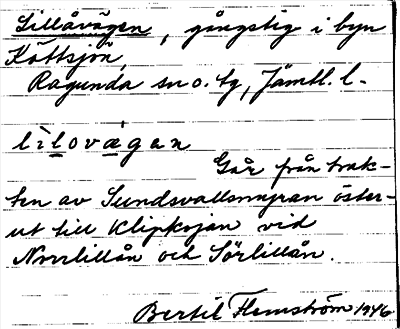 Lillåvägen, gångstig i byn
Köttsjön,
Ragunda sn o. tg, Jämtl. l.
lìlovägan
Går från trak-
ten av Sundsvallsmyran öster-
ut till Klipkojan vid
Norrlillån och Sörlillån.
Bertil Flemström 1946